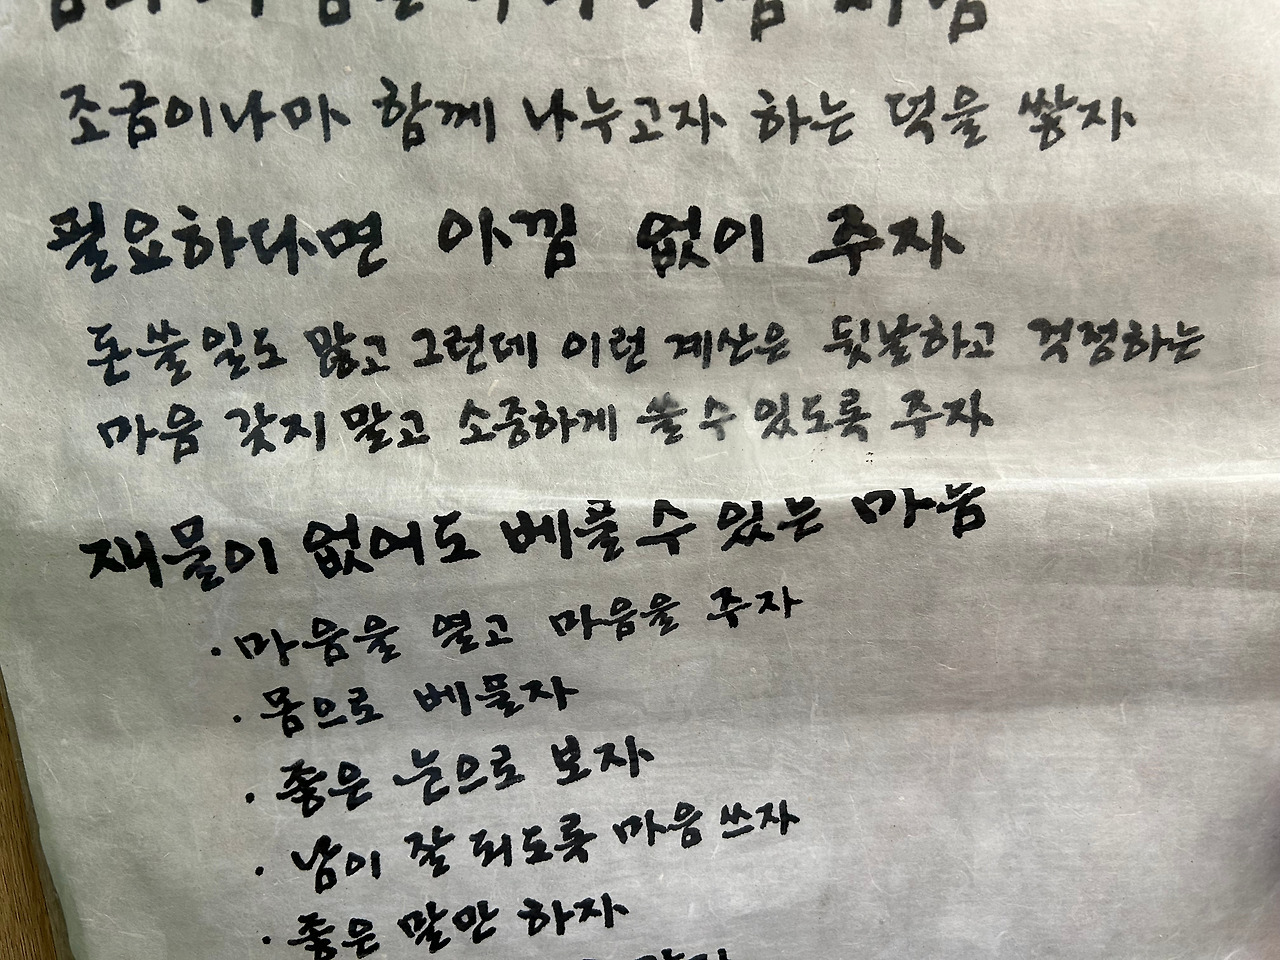 조금이나마 함께 나누고자 하는 덕을 쌓자
필요하다면 아낌 없이 주자
돈 쓸 일도 많고 그런데 이런 계산은 뒷날하고 걱정하는
마음 갖지 말고 소중하게 쓸 수 있도록 주자
재물이 없어도 베풀 수 있는 마음
· 마음을 열고 마음을 주자
· 몸으로 베풀자
· 좋은 눈으로 보자
· 남이 잘 되도록 마음 쓰자
· 좋은 말만 하자